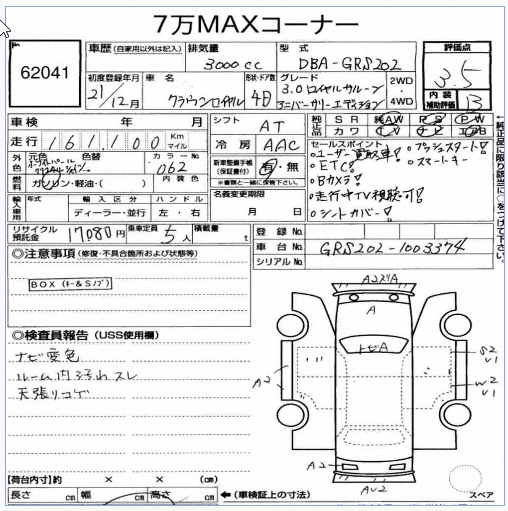 7万MAXコーナー
62041
車歴(自家用以外は記入) 排気量 型式 評価点
3000cc DBA-GRS202 3.5
初度登録年月 車名 形状・ドア数 グレード 2WD・4WD 内装補助評価 B
21/12月 クラウンロイヤル 4D 3.0ロイヤルサルーン
アニバーサリーエディション
車検 年 月 シフト AT 純正品 SR AW PS PW
カワ TV ナビ エアB
走行 161,100 Km マイル 冷房 AAC
セールスポイント
○ユーザー買取車! ○プッシュスタート!
○ETC! ○スマートキー
○Bカメラ!
○走行中TV視聴可!
○シートカバー!
外色 元色 色替 カラーNo. 062
内装色
燃料 ガソリン・軽油・( )
新車整備手帳(保証書付) 有・無
※書類と一緒に保管下さい。
輸入車用 年式 輸入区分 ハンドル
ディーラー・並行 左・右
名義変更期限
月 日
リサイクル預託金 17080円 乗車定員 5人 積載量 t
登録No.
車台No. GRS202-1003374
シリアルNo.
◎注意事項(修復・不具合箇所および状態等)
BOX(キー&Sノブ)
◎検査員報告(USS使用欄)
ナビ変色
ルーム内汚れスレ
天張りコゲ
A
トビA
A2
S2
U1
W2
U1
A2
AU2
スペア
【荷台内寸】約 × × (cm)
長さ cm 幅 cm 高さ cm ←(車検証上の寸法)
←純正品に限り該当に○をつけて下さい。